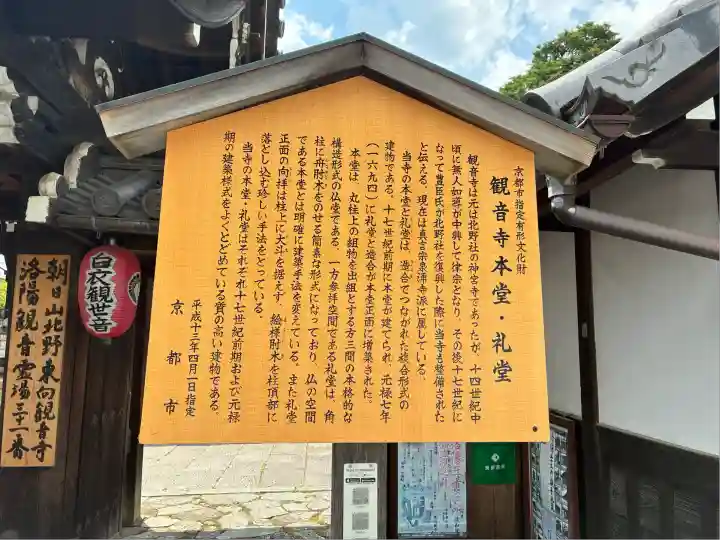 京都市指定有形文化財
観音寺本堂・礼堂
観音寺は元は北野社の神宮寺であったが、十四世紀中
頃に無人如導が中興して律宗となり、その後十七世紀に
なって豊臣氏が北野社を復興した際に当寺も整備された
と伝える。現在は真言宗泉涌寺派に属している。
当寺の本堂と礼堂は、造合でつながれた複合形式の
建物である。十七世紀前期に本堂が建てられ、元禄七年
(一六九四)に礼堂と造合が本堂正面に増築された。
本堂は、丸柱上の組物を出組とする方三間の本格的な
構造形式の仏堂である。一方参拝空間である礼堂は、角
柱に舟肘木をのせる簡素な形式になっており、仏の空間
である本堂とは明確に建築手法を変えている。また礼堂
正面の向拝は柱上に大斗を据えず、絵様肘木を柱頂部に
落とし込む珍しい手法をとっている。
当寺の本堂・礼堂はそれぞれ十七世紀前期および元禄
期の建築様式をよくとどめている質の高い建物である。
平成十三年四月一日指定
京都市
白衣観世音
朝日山北野東向観音寺
洛陽観音霊場三十一番